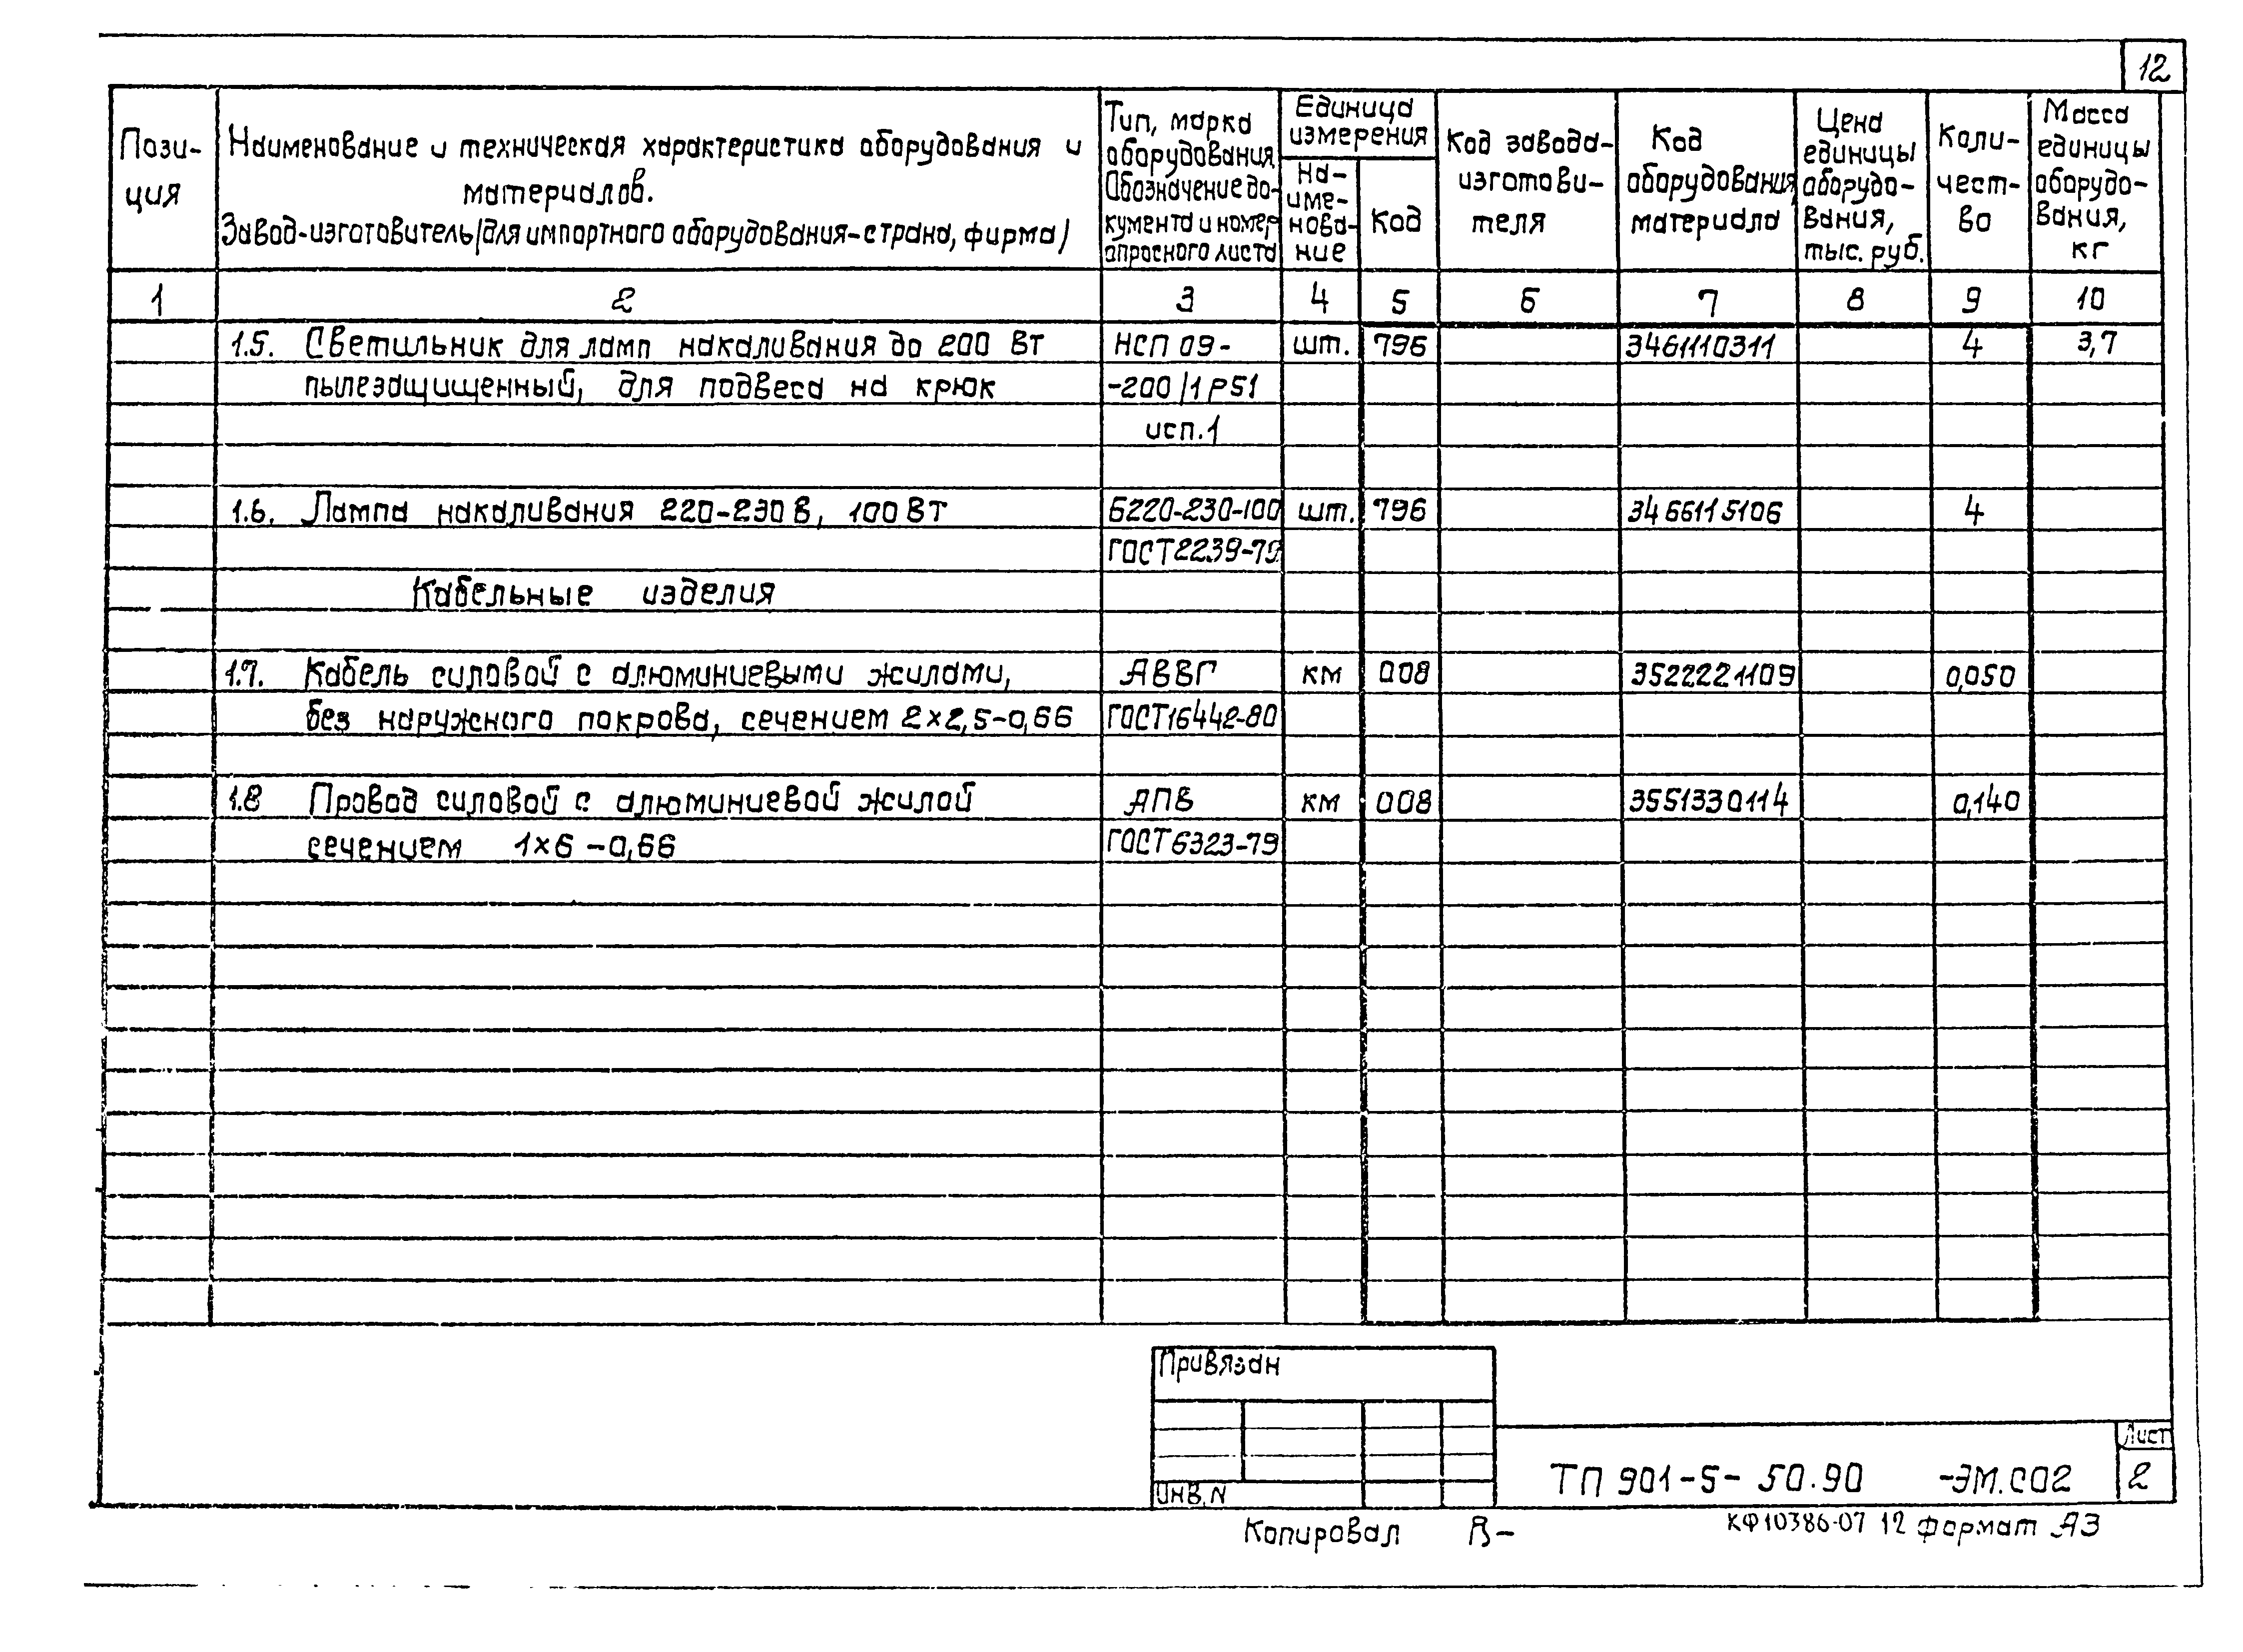 12
Пози-
ция
Наименование и техническая характеристика оборудования и
материалов.
Завод-изготовитель (для импортного оборудования-страна, фирма)
Тип, марка
оборудования
Обозначение до-
кумента и номер
опросного листа
Единица
измерения
На-
име-
нова-
ние
Код
Код завода-
изготови-
теля
Код
оборудования,
материала
Цена
единицы
оборудо-
вания,
тыс. руб.
Коли-
чест-
во
Масса
единицы
оборудо-
вания,
кг
1 2 3 4 5 6 7 8 9 10
1.5. Светильник для ламп накаливания до 200 Вт НСП 09- шт. 796 3461110311 4 3,7
пылезащищенный, для подвеса на крюк -200/1Р51
исп.1
1.6. Лампа накаливания 220-230 В, 100 Вт Б220-230-100 шт. 796 3466115106 4
ГОСТ 2239-79
Кабельные изделия
1.7. Кабель силовой с алюминиевыми жилами, АВВГ км 008 3522221109 0,050
без наружного покрова, сечением 2×2,5-0,66 ГОСТ16442-80
1.8 Провод силовой с алюминиевой жилой АПВ км 008 3551330114 0,140
сечением 1×6 -0,66 ГОСТ 6323-79
Привязан
Инв. N
ТП 901-5- 50.90 -ЭМ.СО2
Лист
2
Копировал В-
КФ10386-07 12 формат А3